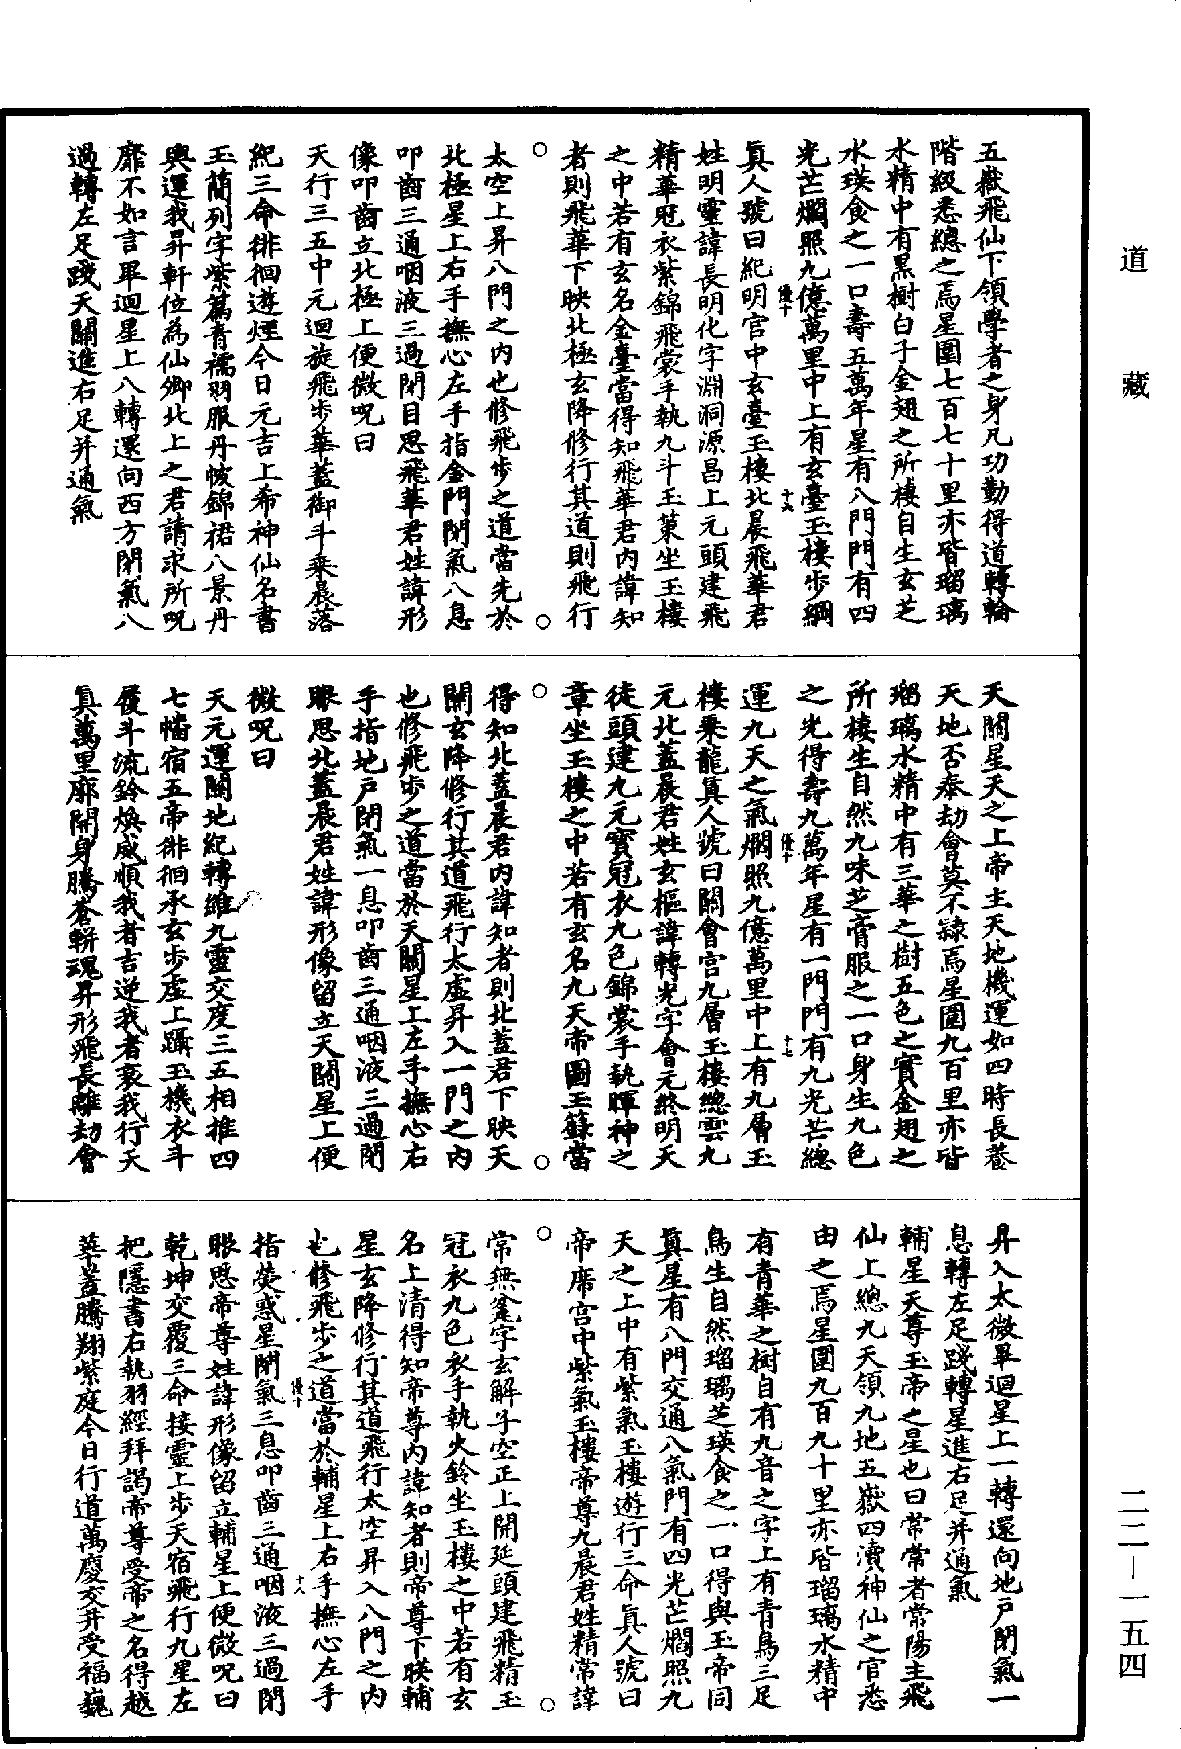 道藏
二二—一五四
五嶽飛仙下領學者之身凡功勤得道轉輪
階級悉總之焉星圍七百七十里亦皆瑠璃
水精中有黑樹白子金翅之所棲自生玄芝
水瑛食之一口壽五萬年星有八門門有四
光芒爓照九億萬里中上有玄臺玉樓步綱
真人號曰紀明宮中玄臺玉樓北晨飛華君
姓明靈諱長明化字淵洞源昌上元頭建飛
精華冠衣紫錦飛裳手執九斗玉策坐玉樓
之中若有玄名金臺當得知飛華君內諱知
者則飛華下映北極玄降修行其道則飛行
太空上昇八門之內也修飛步之道當先於
北極星上右手撫心左手指金門閉氣八息
叩齒三通咽液三過閉目思飛華君姓諱形
像叩齒立北極上便微呪曰
天行三五中元迴旋飛步華蓋御斗乘晨落
紀三命徘徊遊煙今日元吉上希神仙名書
玉簡列字紫篇青襦羽服丹帔錦裙八景丹
輿運我昇軒位為仙卿北上之君請求所呪
靡不如言畢迴星上八轉還向西方閉氣八
過轉左足踐天關進右足并通氣
天關星天之上帝主天地機運如四時長養
天地否泰劫會莫不隸焉星圍九百里亦皆
瑠璃水精中有三華之樹五色之實金翅之
所棲生自然九味芝膏服之一口身生九色
之光得壽九萬年星有一門門有九光芒總
運九天之氣爓照九億萬里中上有九層玉
樓乘龍真人號曰關會宮九層玉樓總雲九
元北蓋晨君姓玄樞諱轉光字會元終明天
徒頭建九元寶冠衣九色錦裳手執暉神之
章坐玉樓之中若有玄名九天帝圖玉籙當
得知北蓋晨君內諱知者則北蓋君下映天
關玄降修行其道飛行太虛昇入一門之內
也修飛步之道當於天關星上左手撫心右
手指地戶閉氣一息叩齒三通咽液三過閉
眼思北蓋晨君姓諱形像留立天關星上便
微呪曰
天元運關地紀轉維九靈交度三五相推四
七幡宿五帝徘徊承玄步虛上躡玉機衣斗
履斗流鈴煥威順我者吉逆我者衰我行天
真萬里廓開身騰蒼軿魂昇形飛長離劫會
昇入太微畢迴星上一轉還向地戶閉氣一
息轉左足踐轉星進右足并通氣
輔星天尊玉帝之星也曰常常者常陽主飛
仙上總九天領九地五嶽四瀆神仙之官悉
由之焉星圍九百九十里亦皆瑠璃水精中
有青華之樹自有九音之字上有青鳥三足
鳥生自然瑠璃芝瑛食之一口得與玉帝同
真星有八門交通八氣門有四光芒爓照九
天之上中有紫氣玉樓遊行三命真人號曰
帝席宮中紫氣玉樓帝尊九晨君姓精常諱
常無〇字玄解子空正上開延頭建飛精玉
冠衣九色衣手執火鈴坐玉樓之中若有玄
名上清得知帝尊內諱知者則帝尊下暎輔
星玄降修行其道飛行太空昇入八門之內
也修飛步之道當於輔星上右手撫心左手
指熒惑星閉氣三息叩齒三通咽液三過閉
眼思帝尊姓諱形像留立輔星上便微呪曰
乾坤交覆三命接靈上步天宿飛行九星左
把隱書右執羽經拜謁帝尊受帝之名得越
華蓋騰翔紫庭今日行道萬慶交并受福巍